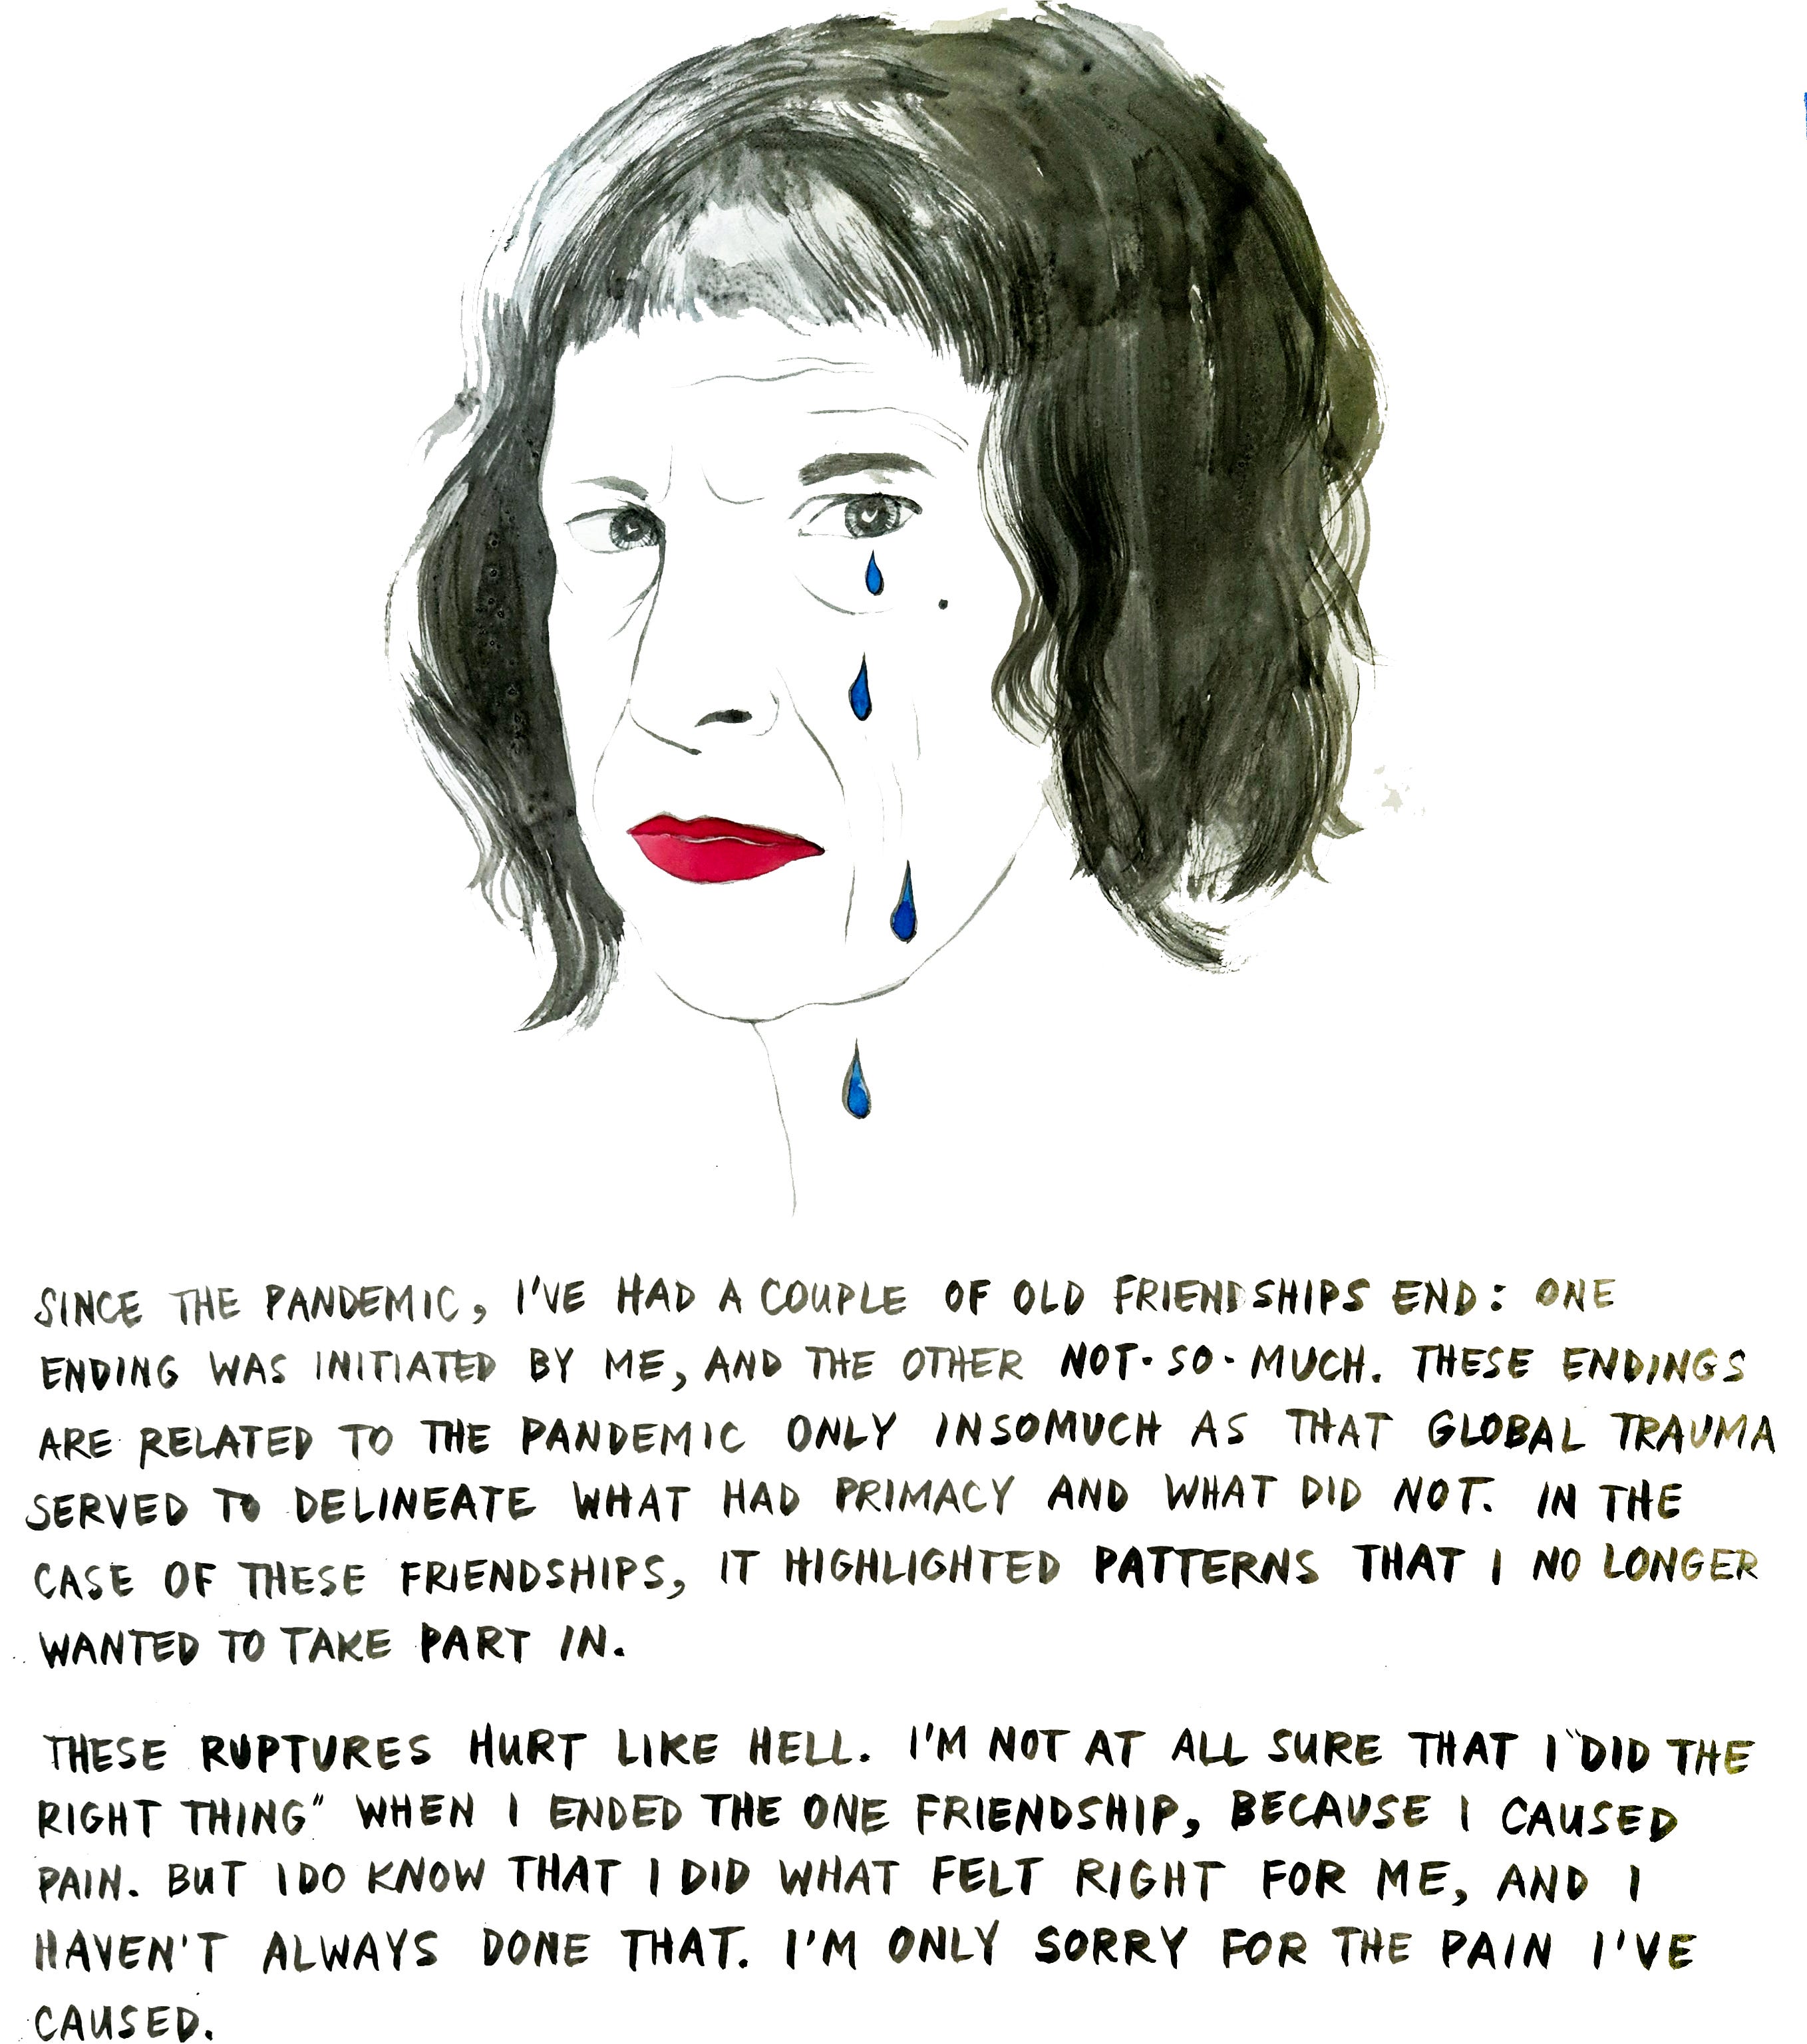 SINCE THE PANDEMIC, I'VE HAD A COUPLE OF OLD FRIENDSHIPS END: ONE
ENDING WAS INITIATED BY ME, AND THE OTHER NOT-SO-MUCH. THESE ENDINGS
ARE RELATED TO THE PANDEMIC ONLY INSOMUCH AS THAT GLOBAL TRAUMA
SERVED TO DELINEATE WHAT HAD PRIMACY AND WHAT DID NOT. IN THE
CASE OF THESE FRIENDSHIPS, IT HIGHLIGHTED PATTERNS THAT I NO LONGER
WANTED TO TAKE PART IN.
THESE RUPTURES HURT LIKE HELL. I'M NOT AT ALL SURE THAT I "DID THE
RIGHT THING" WHEN I ENDED THE ONE FRIENDSHIP, BECAUSE I CAUSED
PAIN. BUT I DO KNOW THAT I DID WHAT FELT RIGHT FOR ME, AND I
HAVEN'T ALWAYS DONE THAT. I'M ONLY SORRY FOR THE PAIN I'VE
CAUSED.